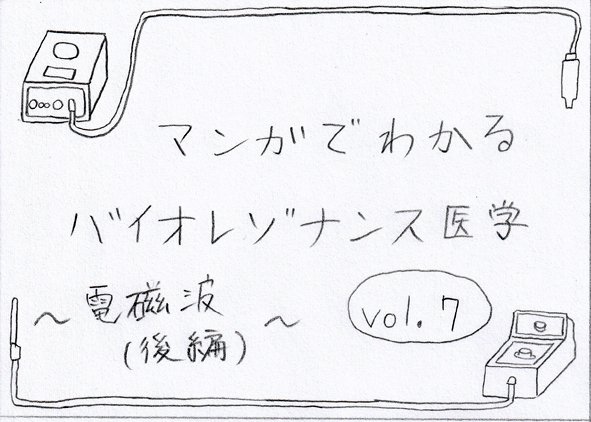 マンガでわかる
バイオレゾナンス医学
～電磁波～
(後編)
vol.7